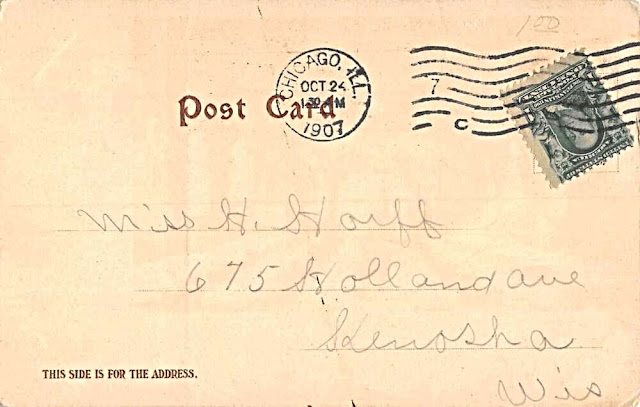 100
CHICAGO, ILL.
OCT 24
1907
7
C
Post Card
Miss H. Horff
675 Holland ave
Kenosha
Wis
THIS SIDE IS FOR THE ADDRESS.